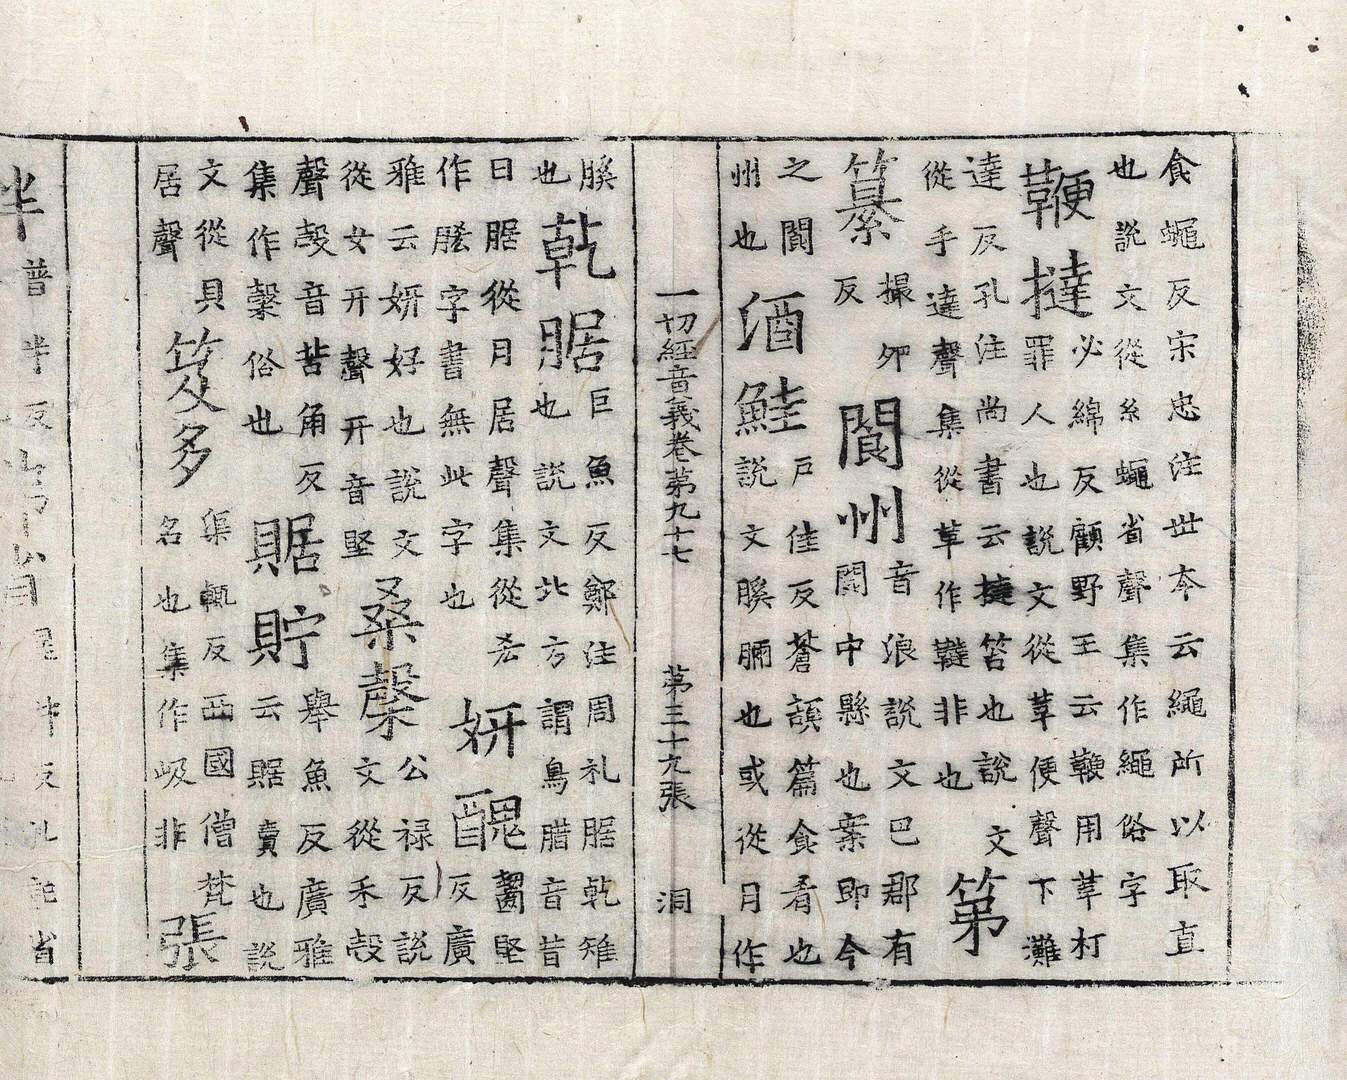 食蠅反宋忠注世本云繩所以取直
也說文從糸蠅省聲集作繩俗字
鞭撻
必綿反顧野王云鞭用革打
罪人也說文從革便聲下灘
達反孔注尚書云撻笞也說文
從手達聲集從革作韃非也
第
篡
撮夘
反
閬州
音浪說文巴郡有
閬中縣也案即今
之閬
州也
酒鮭
戶佳反蒼頡篇食肴也
說文膎脼也或從月作
一切經音義卷第九十七 第三十九張 洞
膎
也
乾腒
巨魚反鄭注周礼腒乾雉
也說文北方謂鳥腊音昔
日腒從月居聲集從
作字書無此字也
妍醜
齧堅
反廣
雅云妍好也說文
從女幵聲幵音堅
桑榖
公禄反說
文從禾㱿
聲㱿音苦角反
集作糓俗也
䝻貯
舉魚反廣雅
云䝻賣也說
文從貝
居聲
笈多
渠輒反西國僧梵
名也集作岋非
張
半
普半反